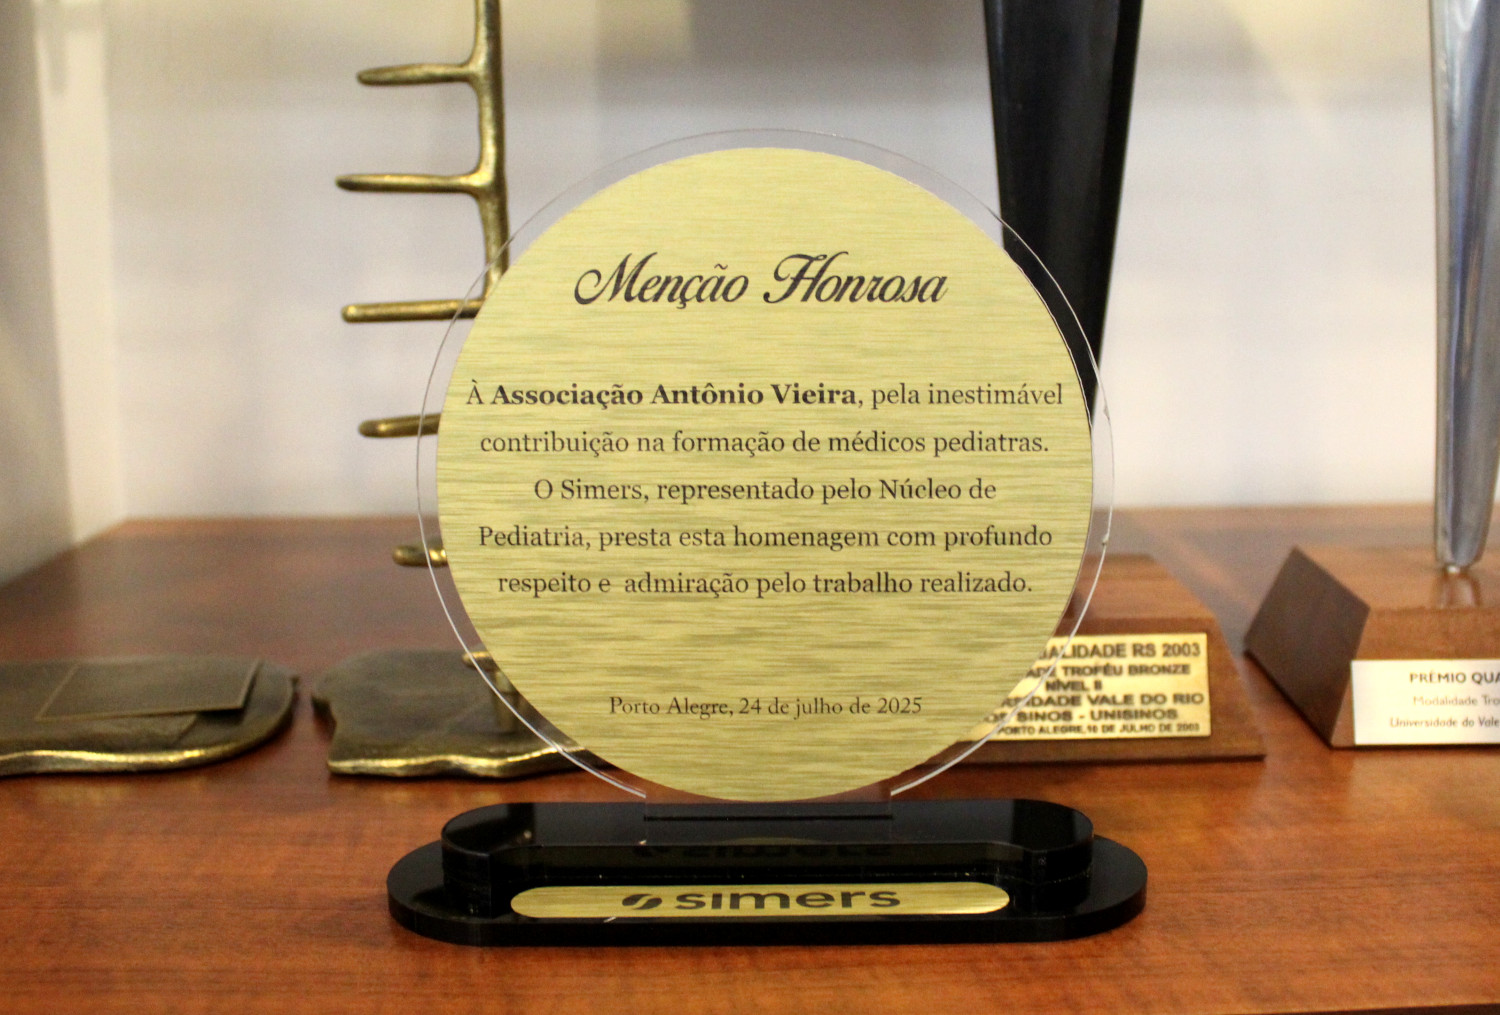 Menção Honrosa
À Associação Antônio Vieira, pela inestimável
contribuição na formação de médicos pediatras.
O Simers, representado pelo Núcleo de
Pediatria, presta esta homenagem com profundo
respeito e admiração pelo trabalho realizado.
Porto Alegre, 24 de julho de 2025
simers
RS 2003
TROFÉU BRONZE
NÍVEL II
VALE DO RIO
SINOS - UNISINOS
PORTO ALEGRE, 10 DE JULHO DE 2003
PRÊMIO
Modalidade
Universidade do Vale